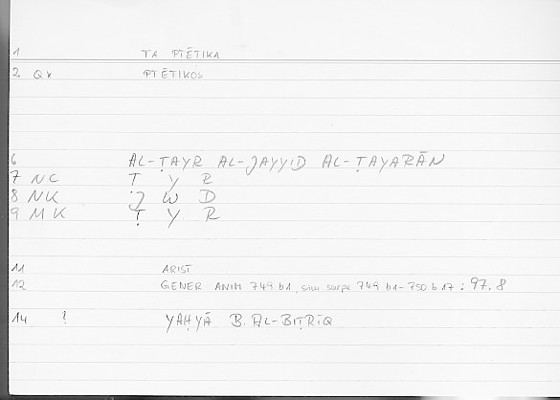 1 TA PTĒTIKA
2 QK PTĒTIKOS
6 AL-ṬAYR AL-JAYYID AL-ṬAYARĀN
7 NC Ṭ Y R
8 NK J W D
9 MK Ṭ Y R
11 ARIST
12 GENER ANIM 749 b1, sim saepe 749 b1-750 b 17 : 97.8
14 ? YAḤYĀ B. AL-BIṬRĪQ